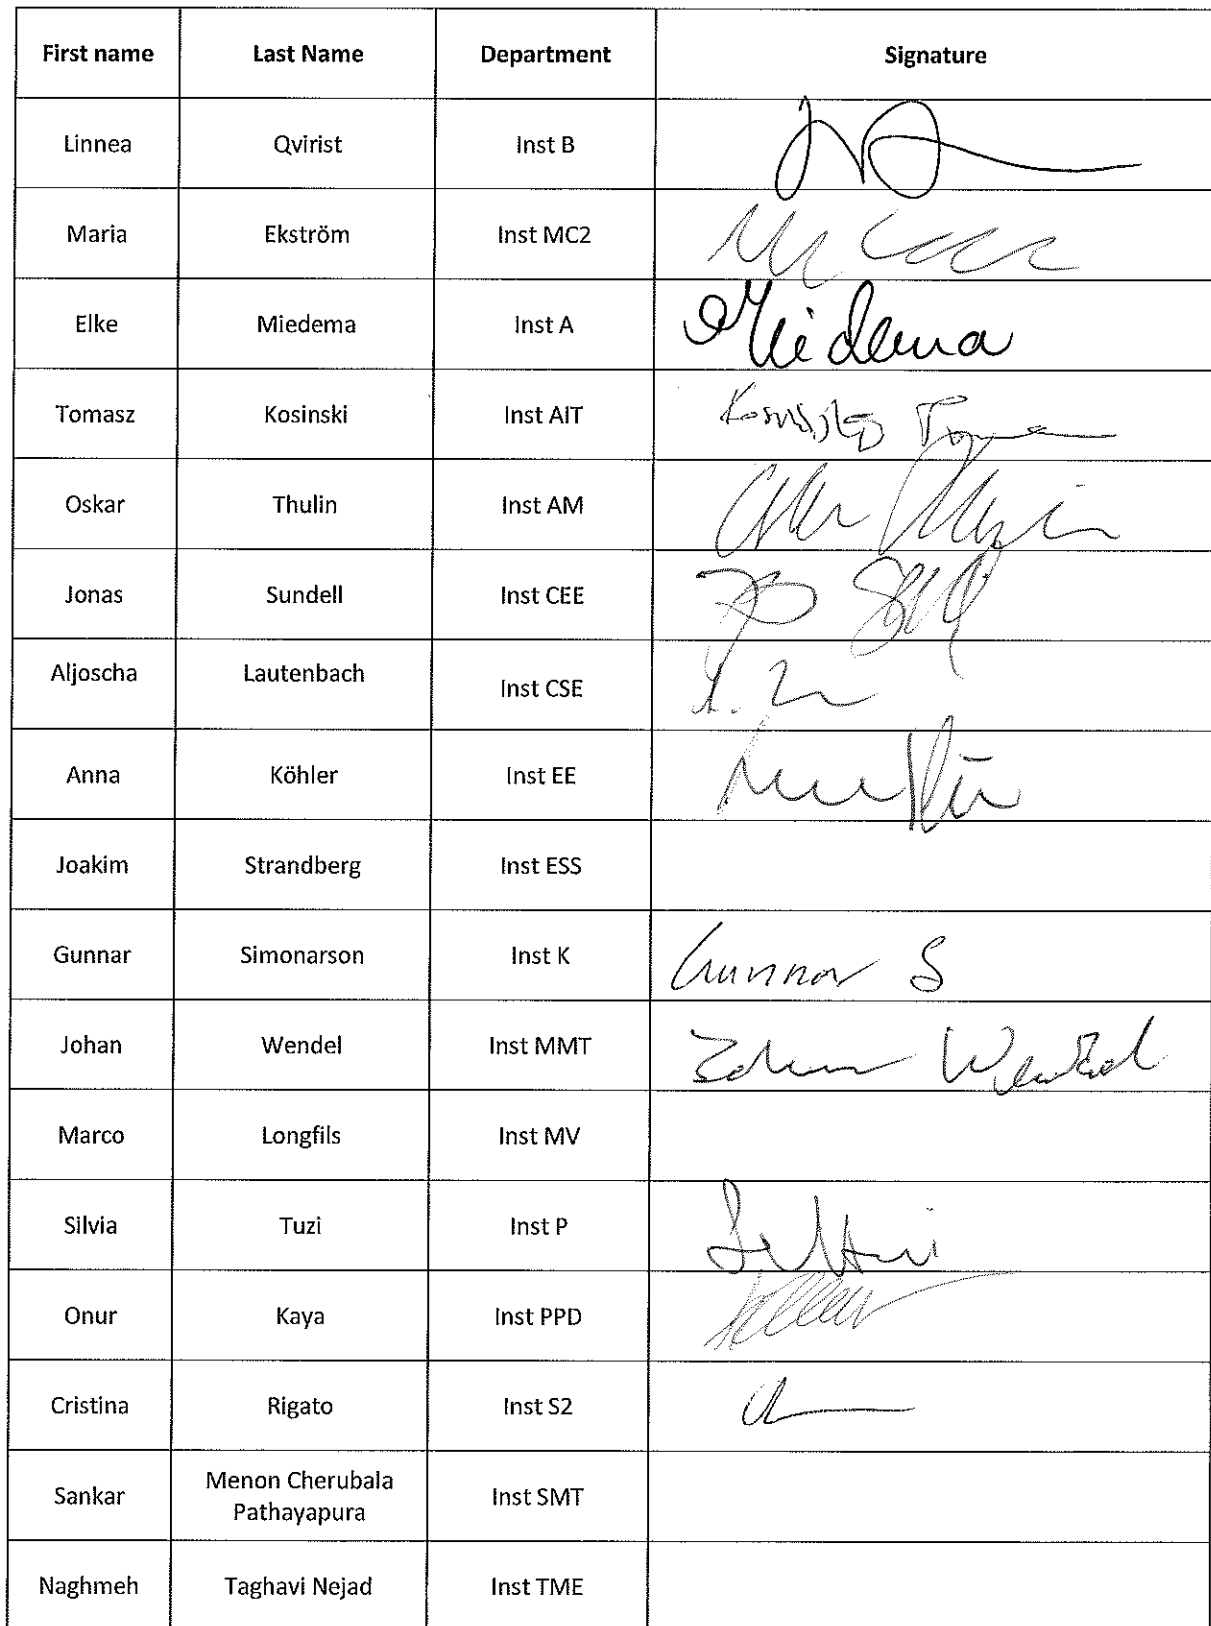 First name Last Name Department Signature
Linnea Qvirist Inst B
Maria Ekström Inst MC2
Elke Miedema Inst A Miedema
Tomasz Kosinski Inst AIT
Oskar Thulin Inst AM
Jonas Sundell Inst CEE
Aljoscha Lautenbach Inst CSE
Anna Köhler Inst EE
Joakim Strandberg Inst ESS
Gunnar Simonarson Inst K Gunnar S
Johan Wendel Inst MMT Johan Wendel
Marco Longfils Inst MV
Silvia Tuzi Inst P
Onur Kaya Inst PPD
Cristina Rigato Inst S2
Sankar Menon Cherubala Pathayapura Inst SMT
Naghmeh Taghavi Nejad Inst TME